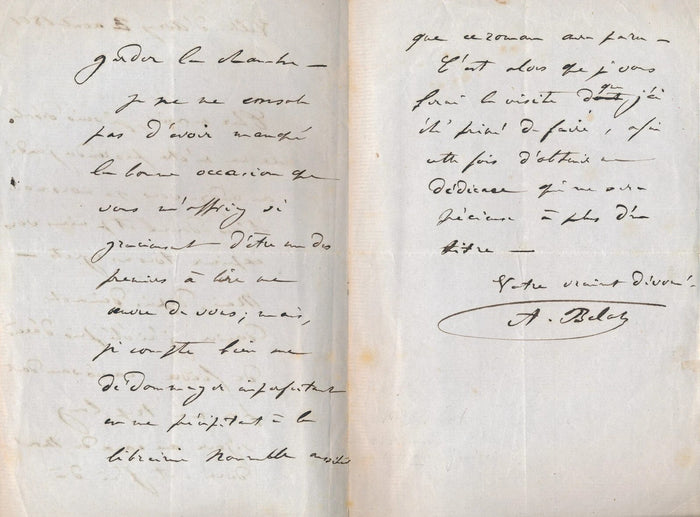 garder la chambre —
Je ne me console
pas d'avoir manqué
la bonne occasion que
vous m'offriez si
gracieusement d'être un des
premiers à lire une
œuvre de vous; mais,
je compte bien me
dédommager imparfaitement
en me précipitant à la
librairie Nouvelle aussitôt
que ce roman aura paru —
C'est alors que je vous
ferai la visite que j'ai
été privé de faire, afin
cette fois d'obtenir une
dédicace qui me sera
précieuse à plus d'un
titre —
Votre vraiment dévoué
A. Belot